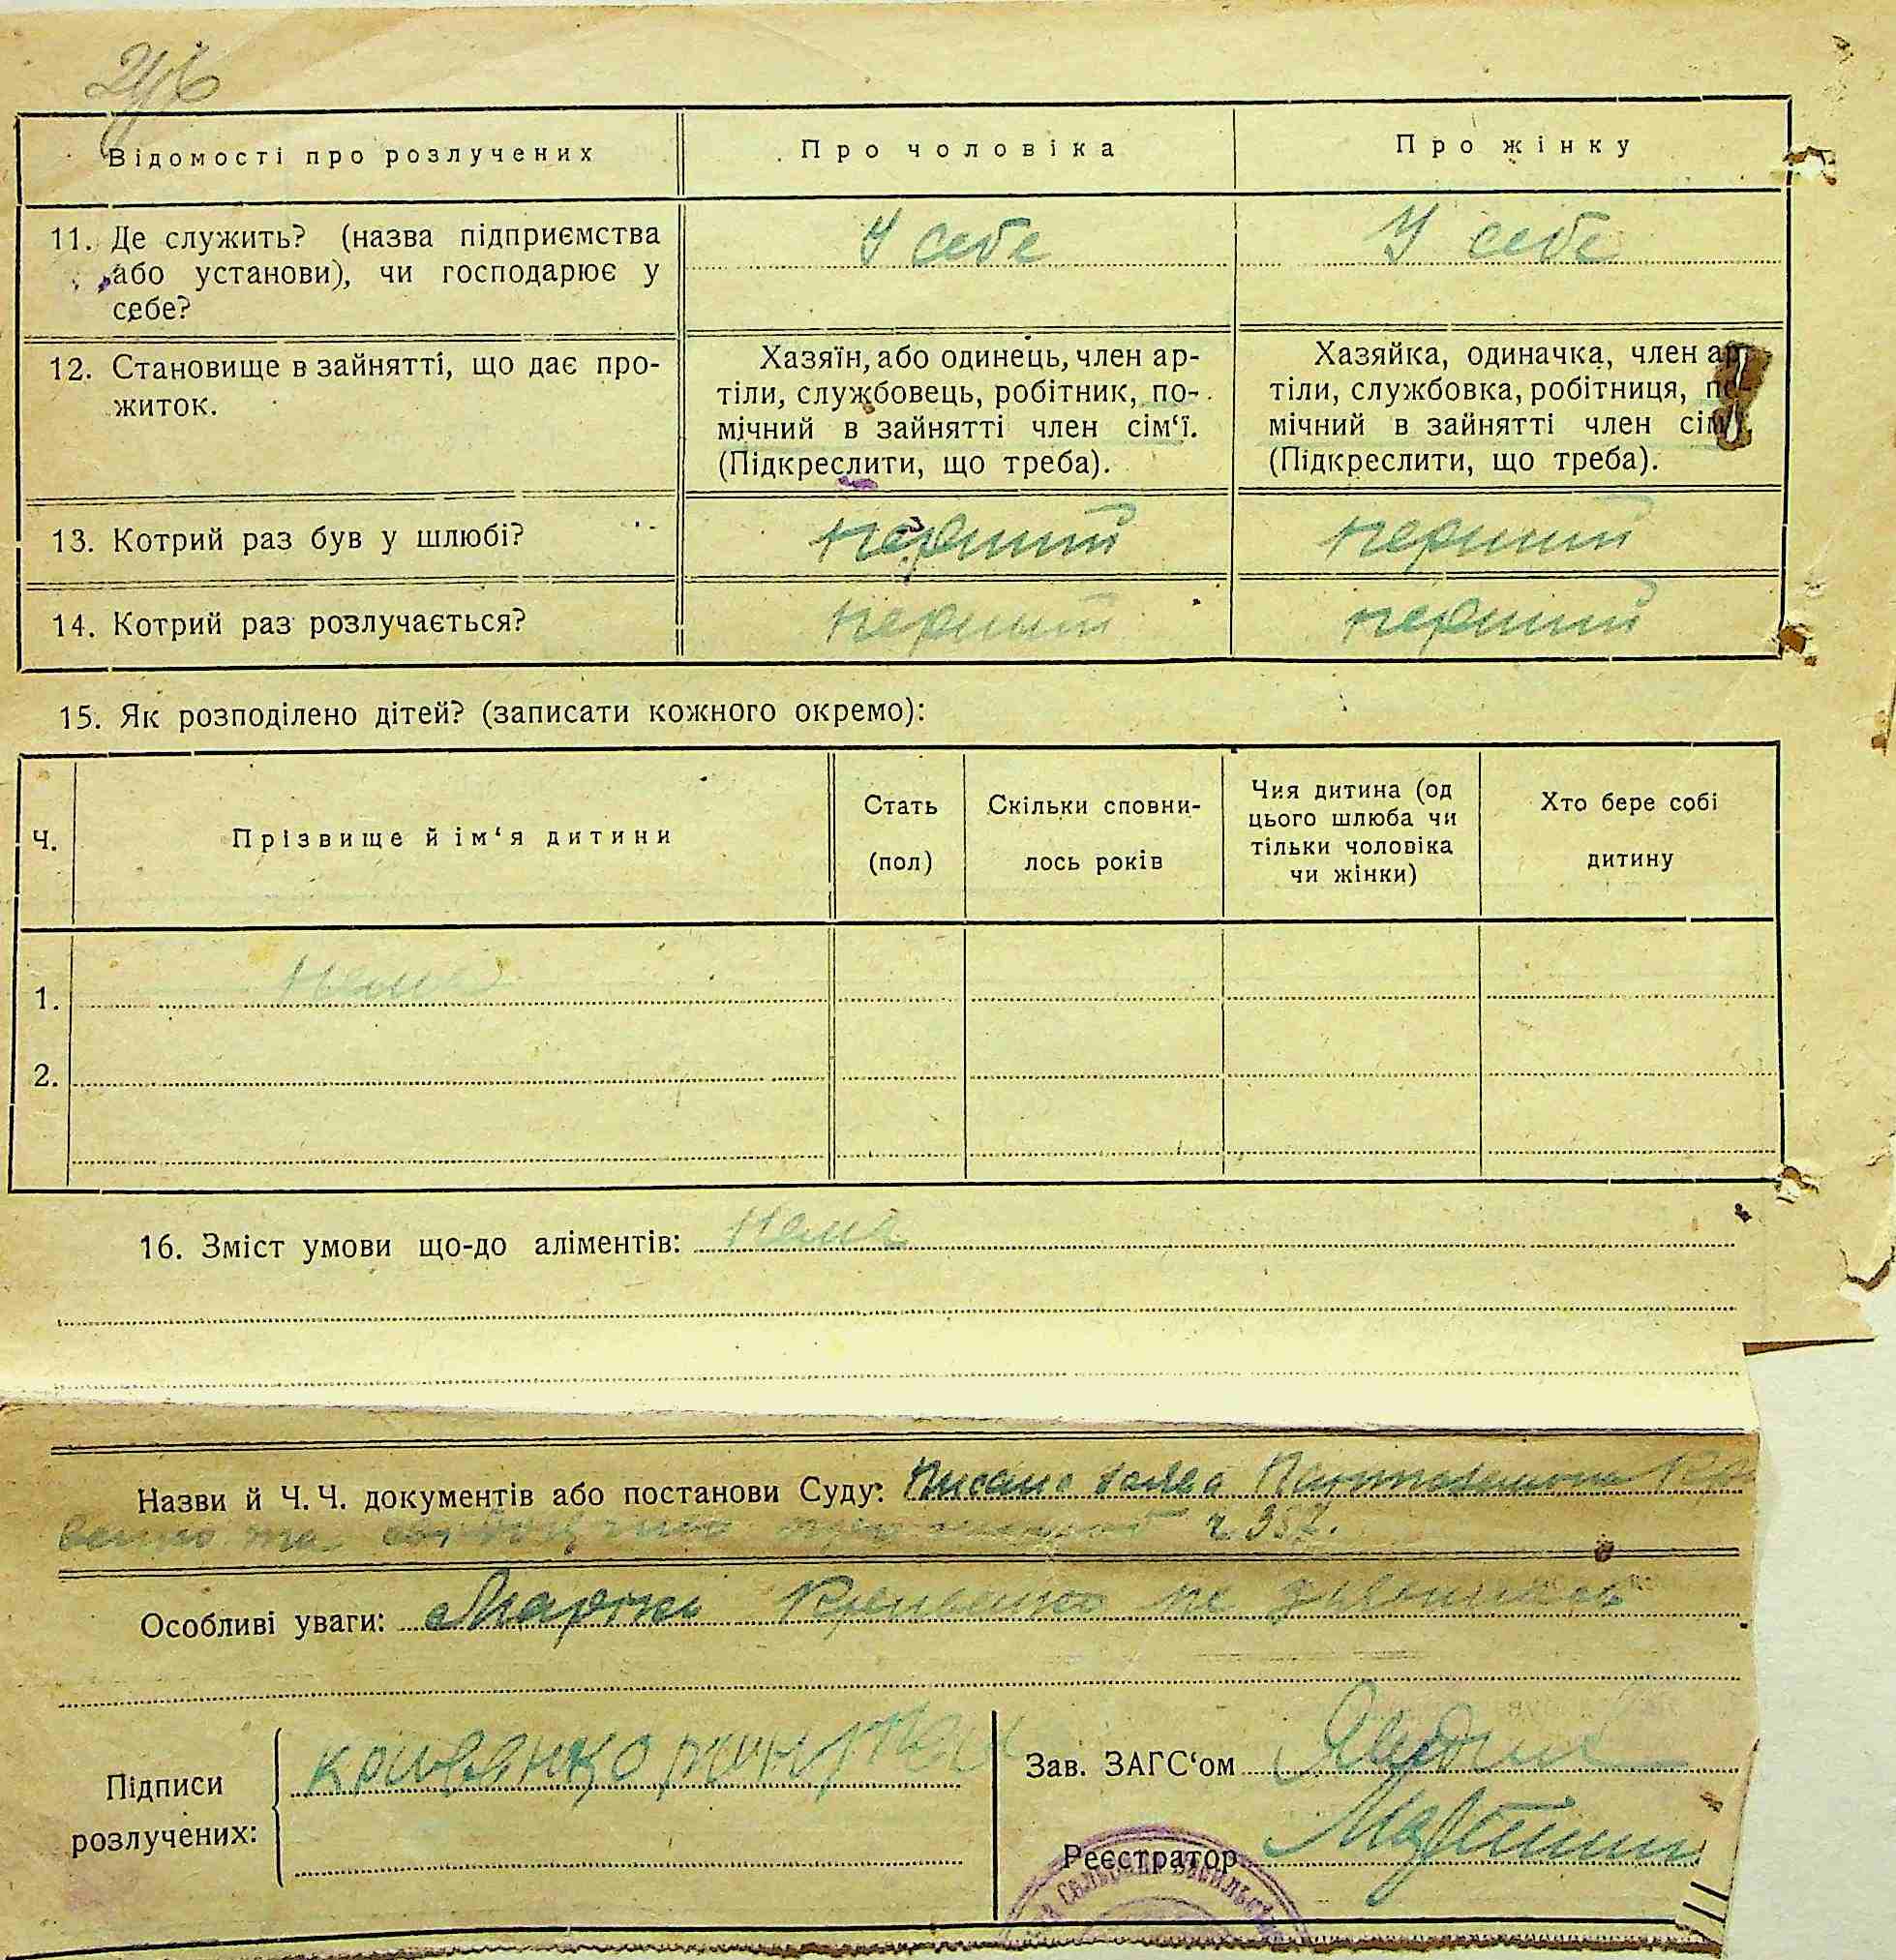 Відомості про розлучених
Про чоловіка
Про жінку
11. Де служить? (назва підприємства
або установи), чи господарює у
себе?
У себе
У себе
12. Становище в зайнятті, що дає про-
житок.
Хазяїн, або одинець, член ар-
тіли, службовець, робітник, по-
мічний в зайнятті член сім‘ї.
(Підкреслити, що треба).
Хазяйка, одиначка, член ар-
тіли, службовка, робітниця, по-
мічний в зайнятті член сім
(Підкреслити, що треба).
13. Котрий раз був у шлюбі?
перший
перший
14. Котрий раз розлучається?
перший
перший
15. Як розподілено дітей? (записати кожного окремо):
Ч.
Прізвище й ім‘я дитини
Стать
(пол)
Скільки сповни-
лось років
Чия дитина (од
цього шлюба чи
тільки чоловіка
чи жінки)
Хто бере собі
дитину
1.
Нема
2.
16. Зміст умови що-до аліментів: Нема
Назви й Ч. Ч. документів або постанови Суду: Писана заява
та ч 357.
Особливі уваги: Марта Кривенко не
Підписи
розлучених:
Зав. ЗАГС‘ом
Реєстратор